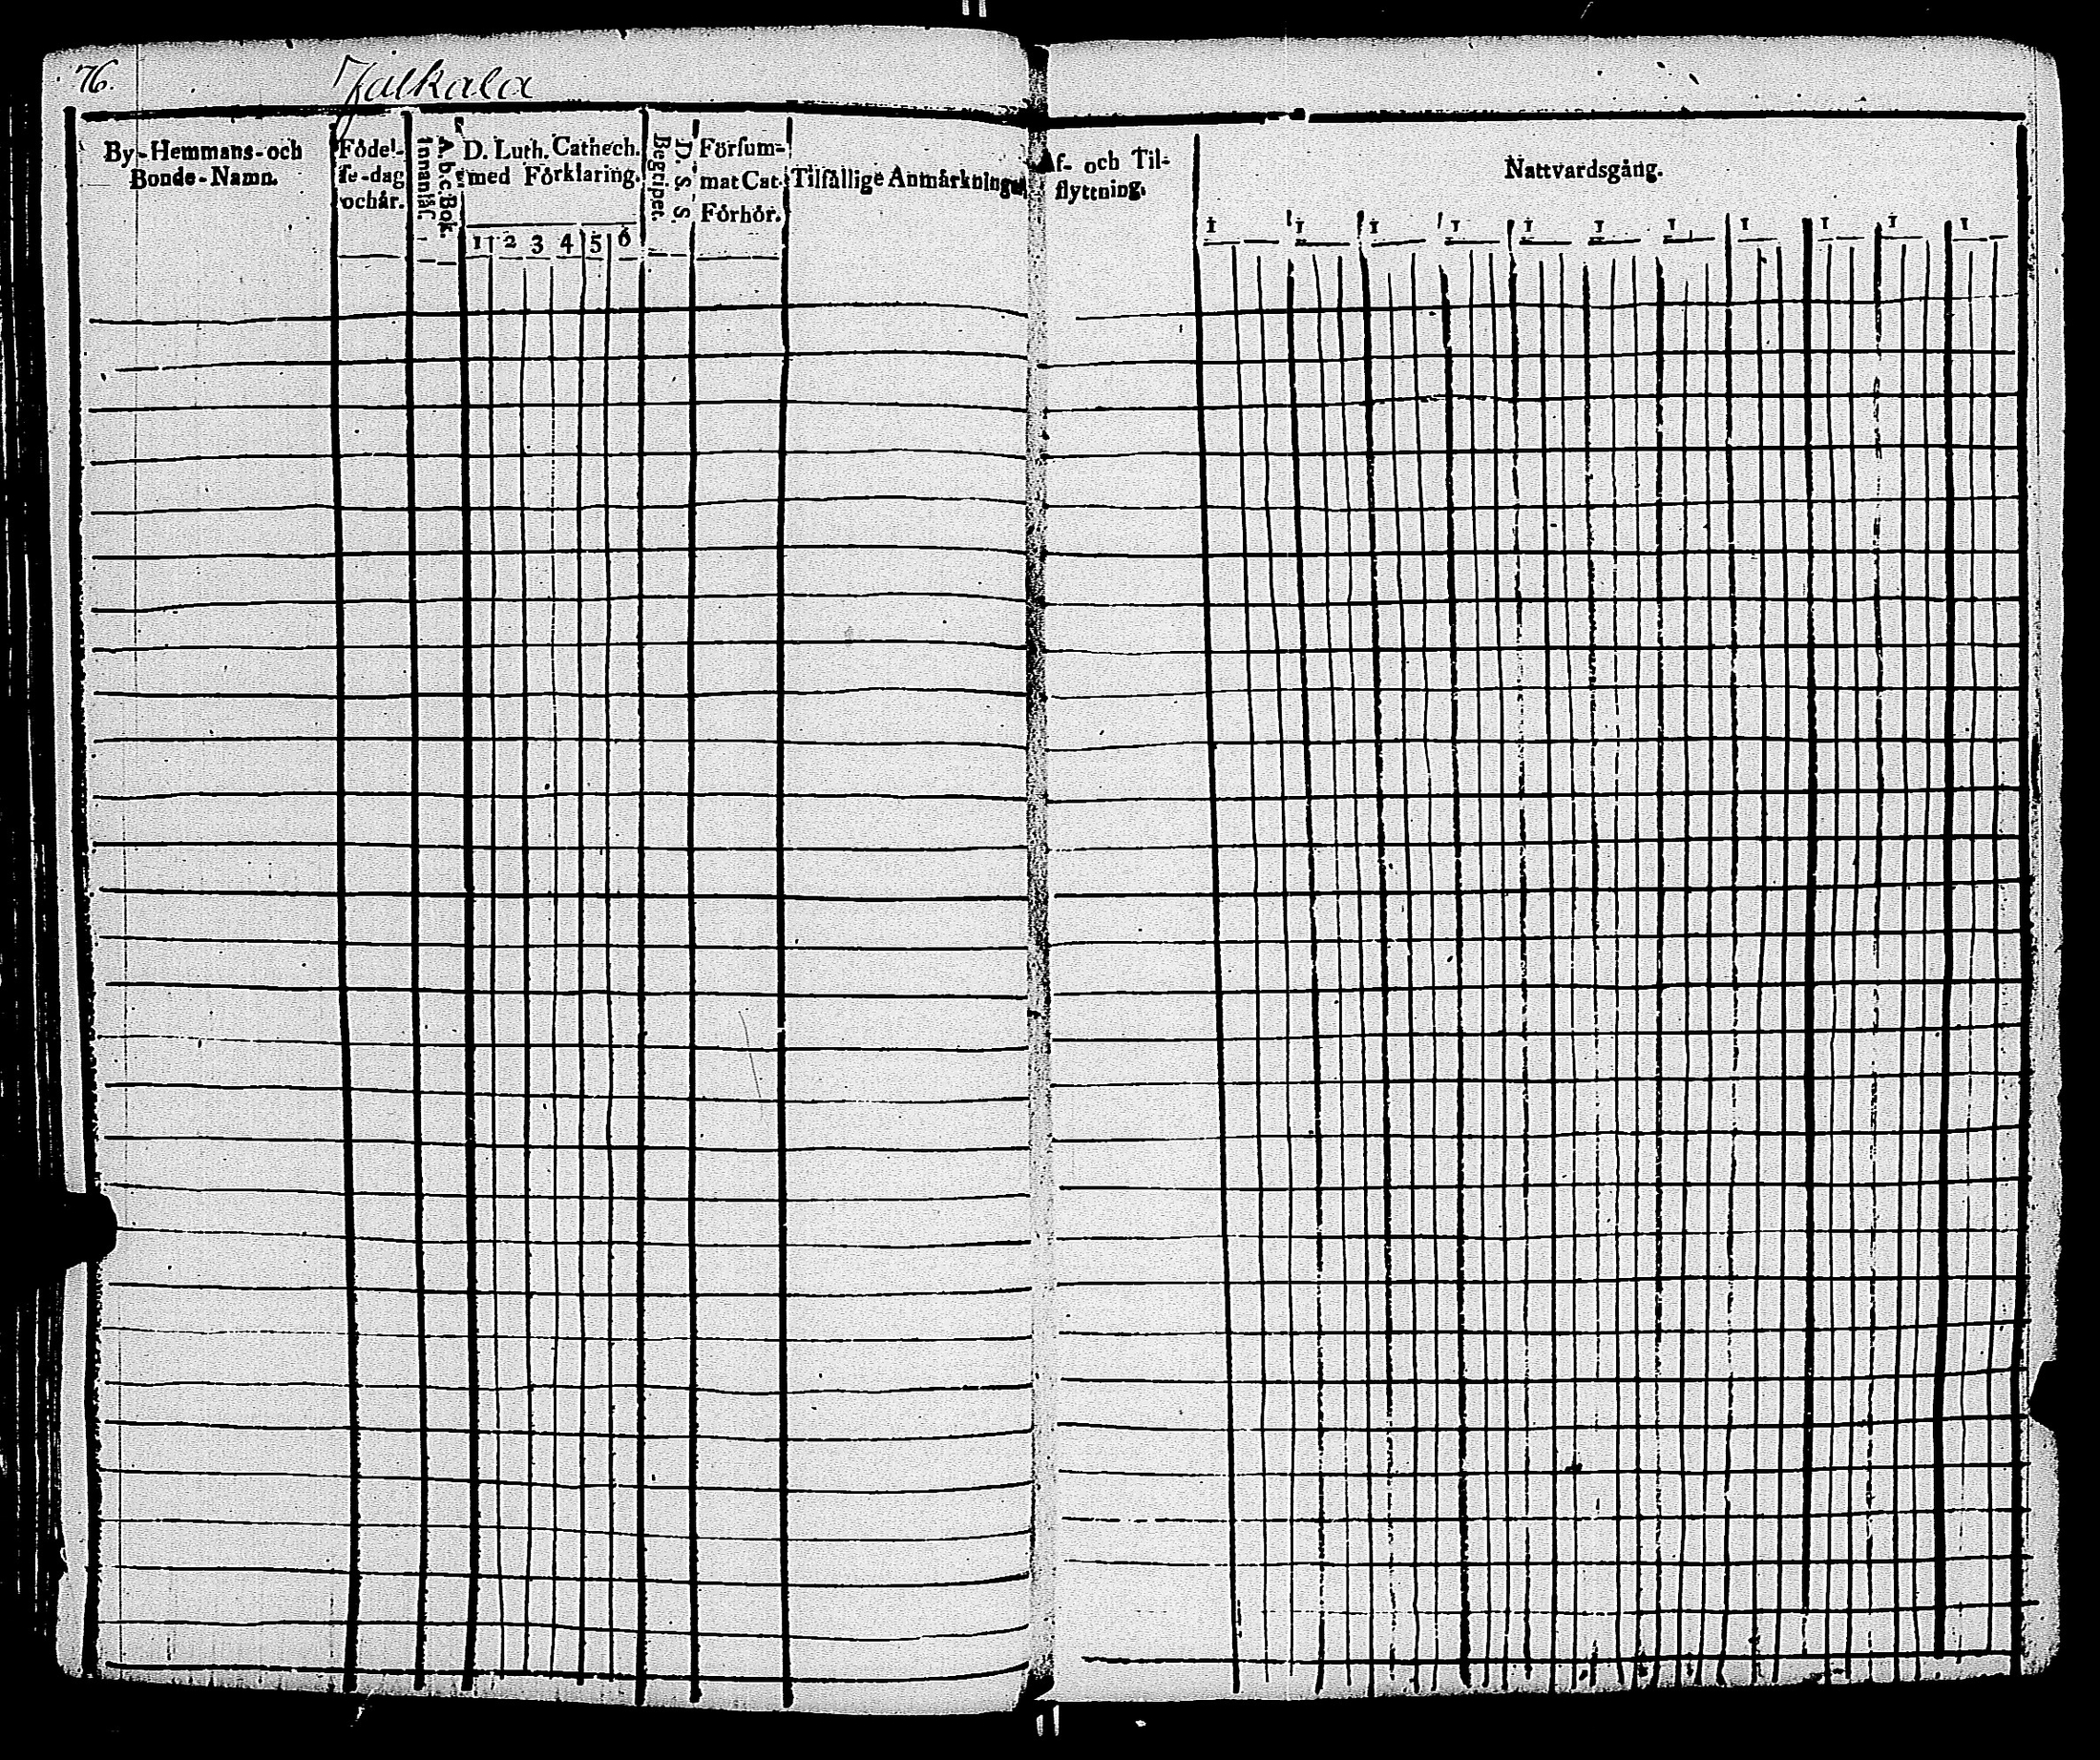 76. Jalkala
By-Hemmans-och
Bonde-Namn.
Födel-
se-dag
och år.
Innanläs.
A.b.c. Bok.
D. Luth. Cathech.
med Förklaring.
1 2 3 4 5 6
Begripet.
D. S. S.
Försum-
mat Cat.
Förhör.
Tilfällige Anmärkningar
Af- och Til-
flyttning.
Nattvardsgång.
1 1 1 1 1 1 1 1 1 1 1